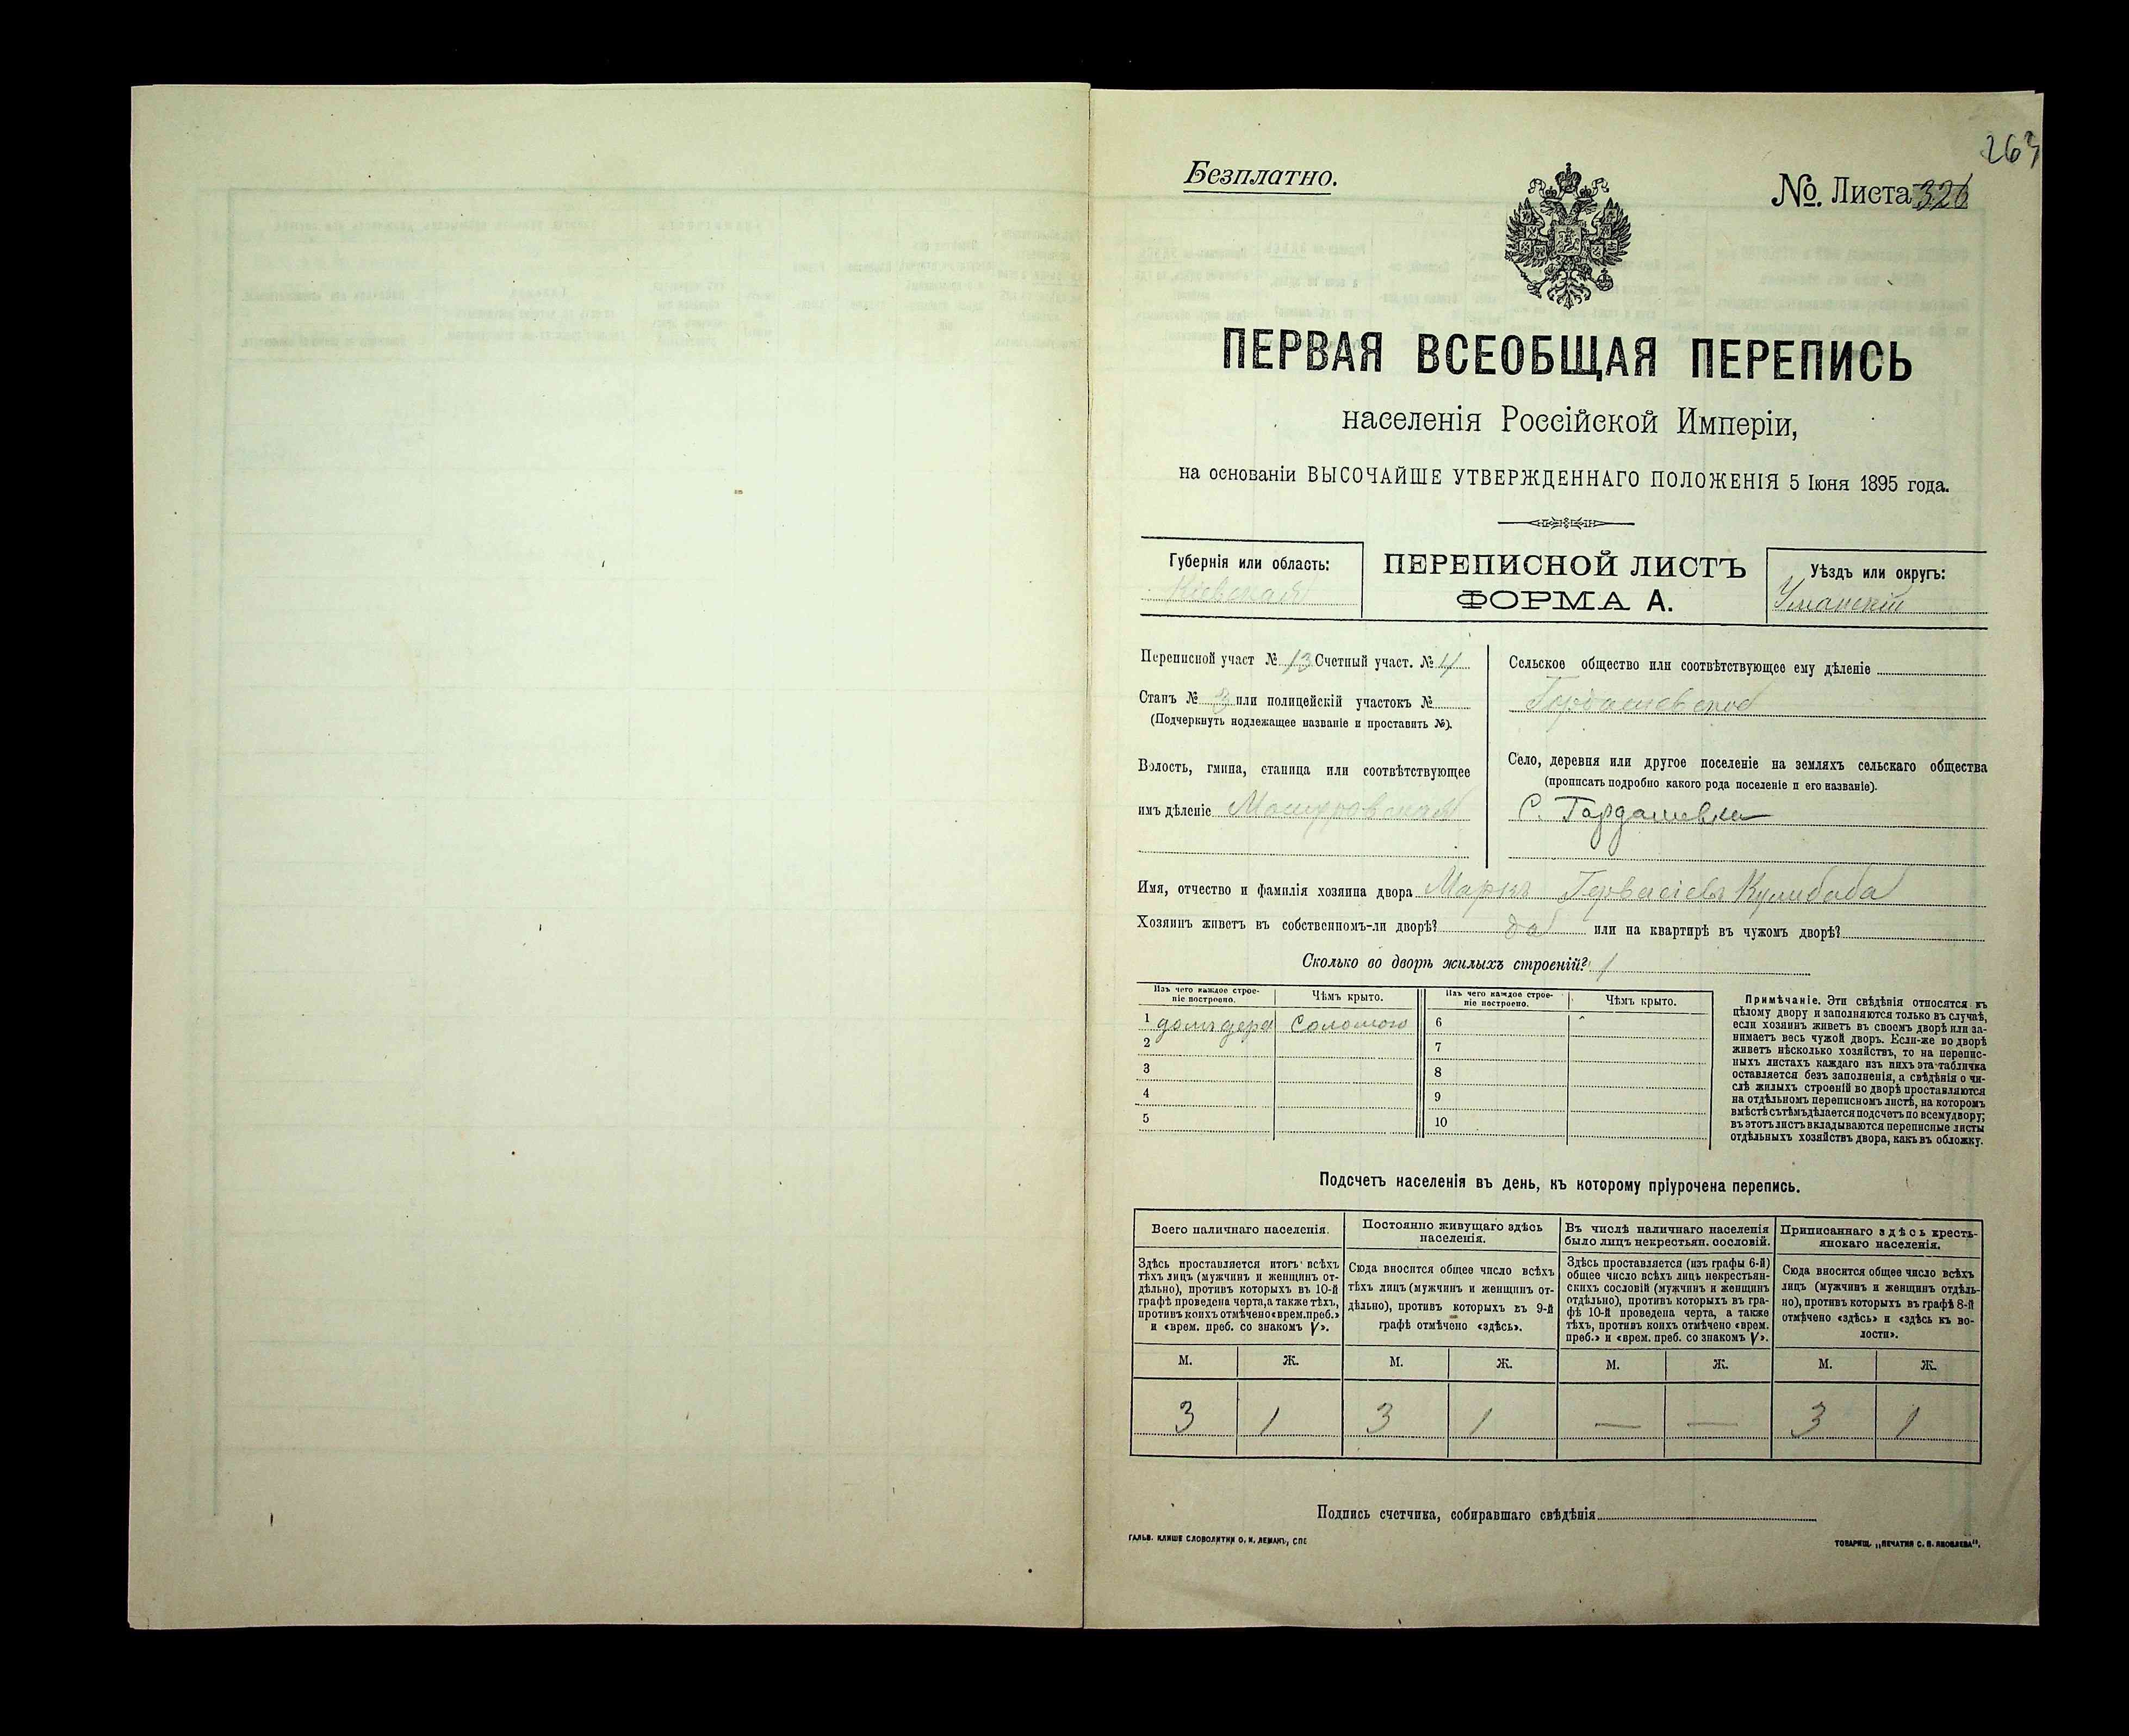 263
Безплатно.
№. Листа 326
ПЕРВАЯ ВСЕОБЩАЯ ПЕРЕПИСЬ
населенія Россійской Имперіи,
на основаніи ВЫСОЧАЙШЕ УТВЕРЖДЕННАГО ПОЛОЖЕНІЯ 5 Іюня 1895 года.
Губернія или область:
Кіевская
ПЕРЕПИСНОЙ ЛИСТЪ
ФОРМА А.
Уѣздъ или округъ:
Уманскій
Переписной участ № 13 Счетный участ. № 4
Станъ № 3 или полицейскій участокъ №
(Подчеркнуть подлежащее названіе и проставить №).
Волость, гмина, станица или соотвѣтствующее
имъ дѣленіе
Сельское общество или соотвѣтствующее ему дѣленіе
Гордашевское
Село, деревня или другое поселеніе на земляхъ сельскаго общества
(прописать подробно какого рода поселеніе и его названіе).
С. Гордашевка
Имя, отчество и фамилія хозяина двора Маркъ Гервасіевъ Кулибаба
Хозяинъ живетъ въ собственномъ-ли дворѣ? да или на квартирѣ въ чужомъ дворѣ?
Сколько во дворѣ жилыхъ строеній? 1
Изъ чего каждое строе-
ніе построено.
Чѣмъ крыто.
Изъ чего каждое строе-
ніе построено.
Чѣмъ крыто.
1 домъ дера Соломою 6
2 7
3 8
4 9
5 10
Примѣчаніе. Эти свѣдѣнія относятся къ
цѣлому двору и заполняются только въ случаѣ,
если хозяинъ живетъ въ своемъ дворѣ или за-
нимаетъ весь чужой дворъ. Если-же во дворѣ
живетъ нѣсколько хозяйствъ, то на перепис-
ныхъ листахъ каждаго изъ нихъ эта табличка
оставляется безъ заполненія, а свѣдѣнія о чи-
слѣ жилыхъ строеній во дворѣ проставляются
на отдѣльномъ переписномъ листѣ, на которомъ
вмѣстѣ съ тѣмъ дѣлается подсчетъ по всему двору;
въ этотъ листъ вкладываются переписные листы
отдѣльныхъ хозяйствъ двора, какъ въ обложку.
Подсчетъ населенія въ день, къ которому пріурочена перепись.
Всего наличнаго населенія.
Здѣсь проставляется итогъ всѣхъ
тѣхъ лицъ (мужчинъ и женщинъ от-
дѣльно), противъ которыхъ въ 10-й
графѣ проведена черта, а также тѣхъ,
противъ коихъ отмѣчено «врем. преб.»
и «врем. преб. со знакомъ V».
Постоянно живущаго здѣсь
населенія.
Сюда вносится общее число всѣхъ
тѣхъ лицъ (мужчинъ и женщинъ от-
дѣльно), противъ которыхъ въ 9-й
графѣ отмѣчено «здѣсь».
Въ числѣ наличнаго населенія
было лицъ некрестьян. сословій.
Здѣсь проставляется (изъ графы 6-й)
общее число всѣхъ лицъ некрестьян-
скихъ сословій (мужчинъ и женщинъ
отдѣльно), противъ которыхъ въ гра-
фѣ 10-й проведена черта, а также
тѣхъ, противъ коихъ отмѣчено «врем.
преб.» и «врем. преб. со знакомъ V».
Приписаннаго здѣсь кресть-
янскаго населенія.
Сюда вносится общее число всѣхъ
лицъ (мужчинъ и женщинъ отдѣль-
но), противъ которыхъ въ графѣ 8-й
отмѣчено «здѣсь» и «здѣсь къ во-
лости».
М. Ж. М. Ж. М. Ж. М. Ж.
3 1 3 1 — — 3 1
Подпись счетчика, собиравшаго свѣдѣнія
ГАЛЬВ. КЛИШЕ СЛОВОЛИТНИ О. И. ЛЕМАНЪ, СПБ
ТОВАРИЩ. „ПЕЧАТНЯ С. П. ЯКОВЛЕВА“.